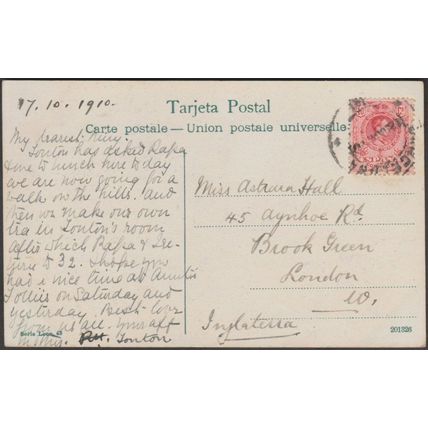 17.10.1910.
Tarjeta Postal
Carte postale — Union postale universelle
My dearest
Tonton has asked Papa
& me to lunch here to day
we are now going for a
walk on the hills. and
then we make our own
tea in Tonton's room
after which Papa &
to 32. I hope you
had a nice time at Auntie
on Saturday and
yesterday. Best love
from us all. yours aff
Tonton
Miss Astarna Hall
45 Aynhoe Rd.
Brook Green
London
W.
Inglaterra
201326